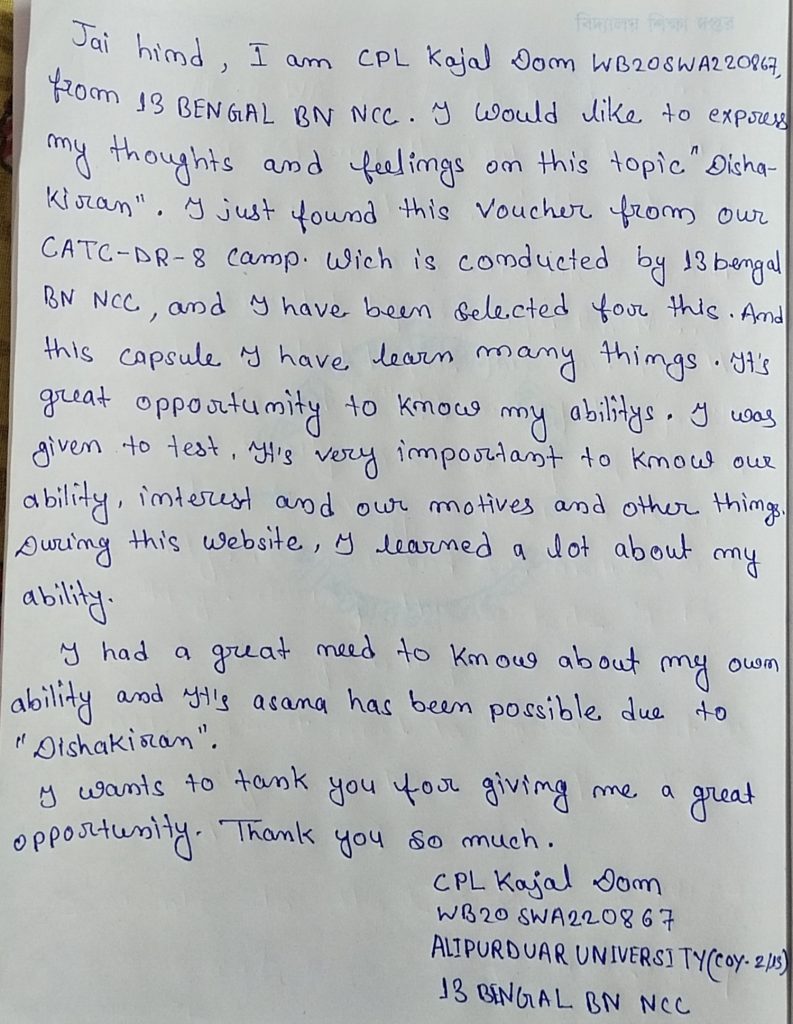 বিদ্যালয় শিক্ষা দপ্তর
Jai hind, I am CPL Kajal Dom WB20SWA220867,
from 13 BENGAL BN NCC. I would like to express
my thoughts and feelings on this topic "Disha-
Kiran". I just found this voucher from our
CATC-DR-8 camp. Wich is conducted by 13 bengal
BN NCC, and I have been selected for this. And
this capsule I have learn many things. It's
great opportunity to know my abilitys. I was
given to test, It's very important to know our
ability, interest and our motives and other things.
During this website, I learned a lot about my
ability.
I had a great need to know about my own
ability and It's asana has been possible due to
"Dishakiran".
I wants to tank you for giving me a great
opportunity. Thank you so much.
CPL Kajal Dom
WB20 SWA220867
ALIPURDUAR UNIVERSITY(COY-2/
13 BENGAL BN NCC